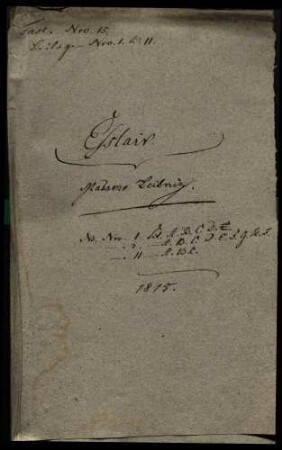 Fasc. Nro. 15.
Beilage Nro. 1. bis 11.
Esslair.
Madame Leibnig.
No. Nro. 1 Lit. A. B. C. D. E
— " 2. — A. B. C. D. E. F. G. H. I.
— " 11 — A. B.
1815.